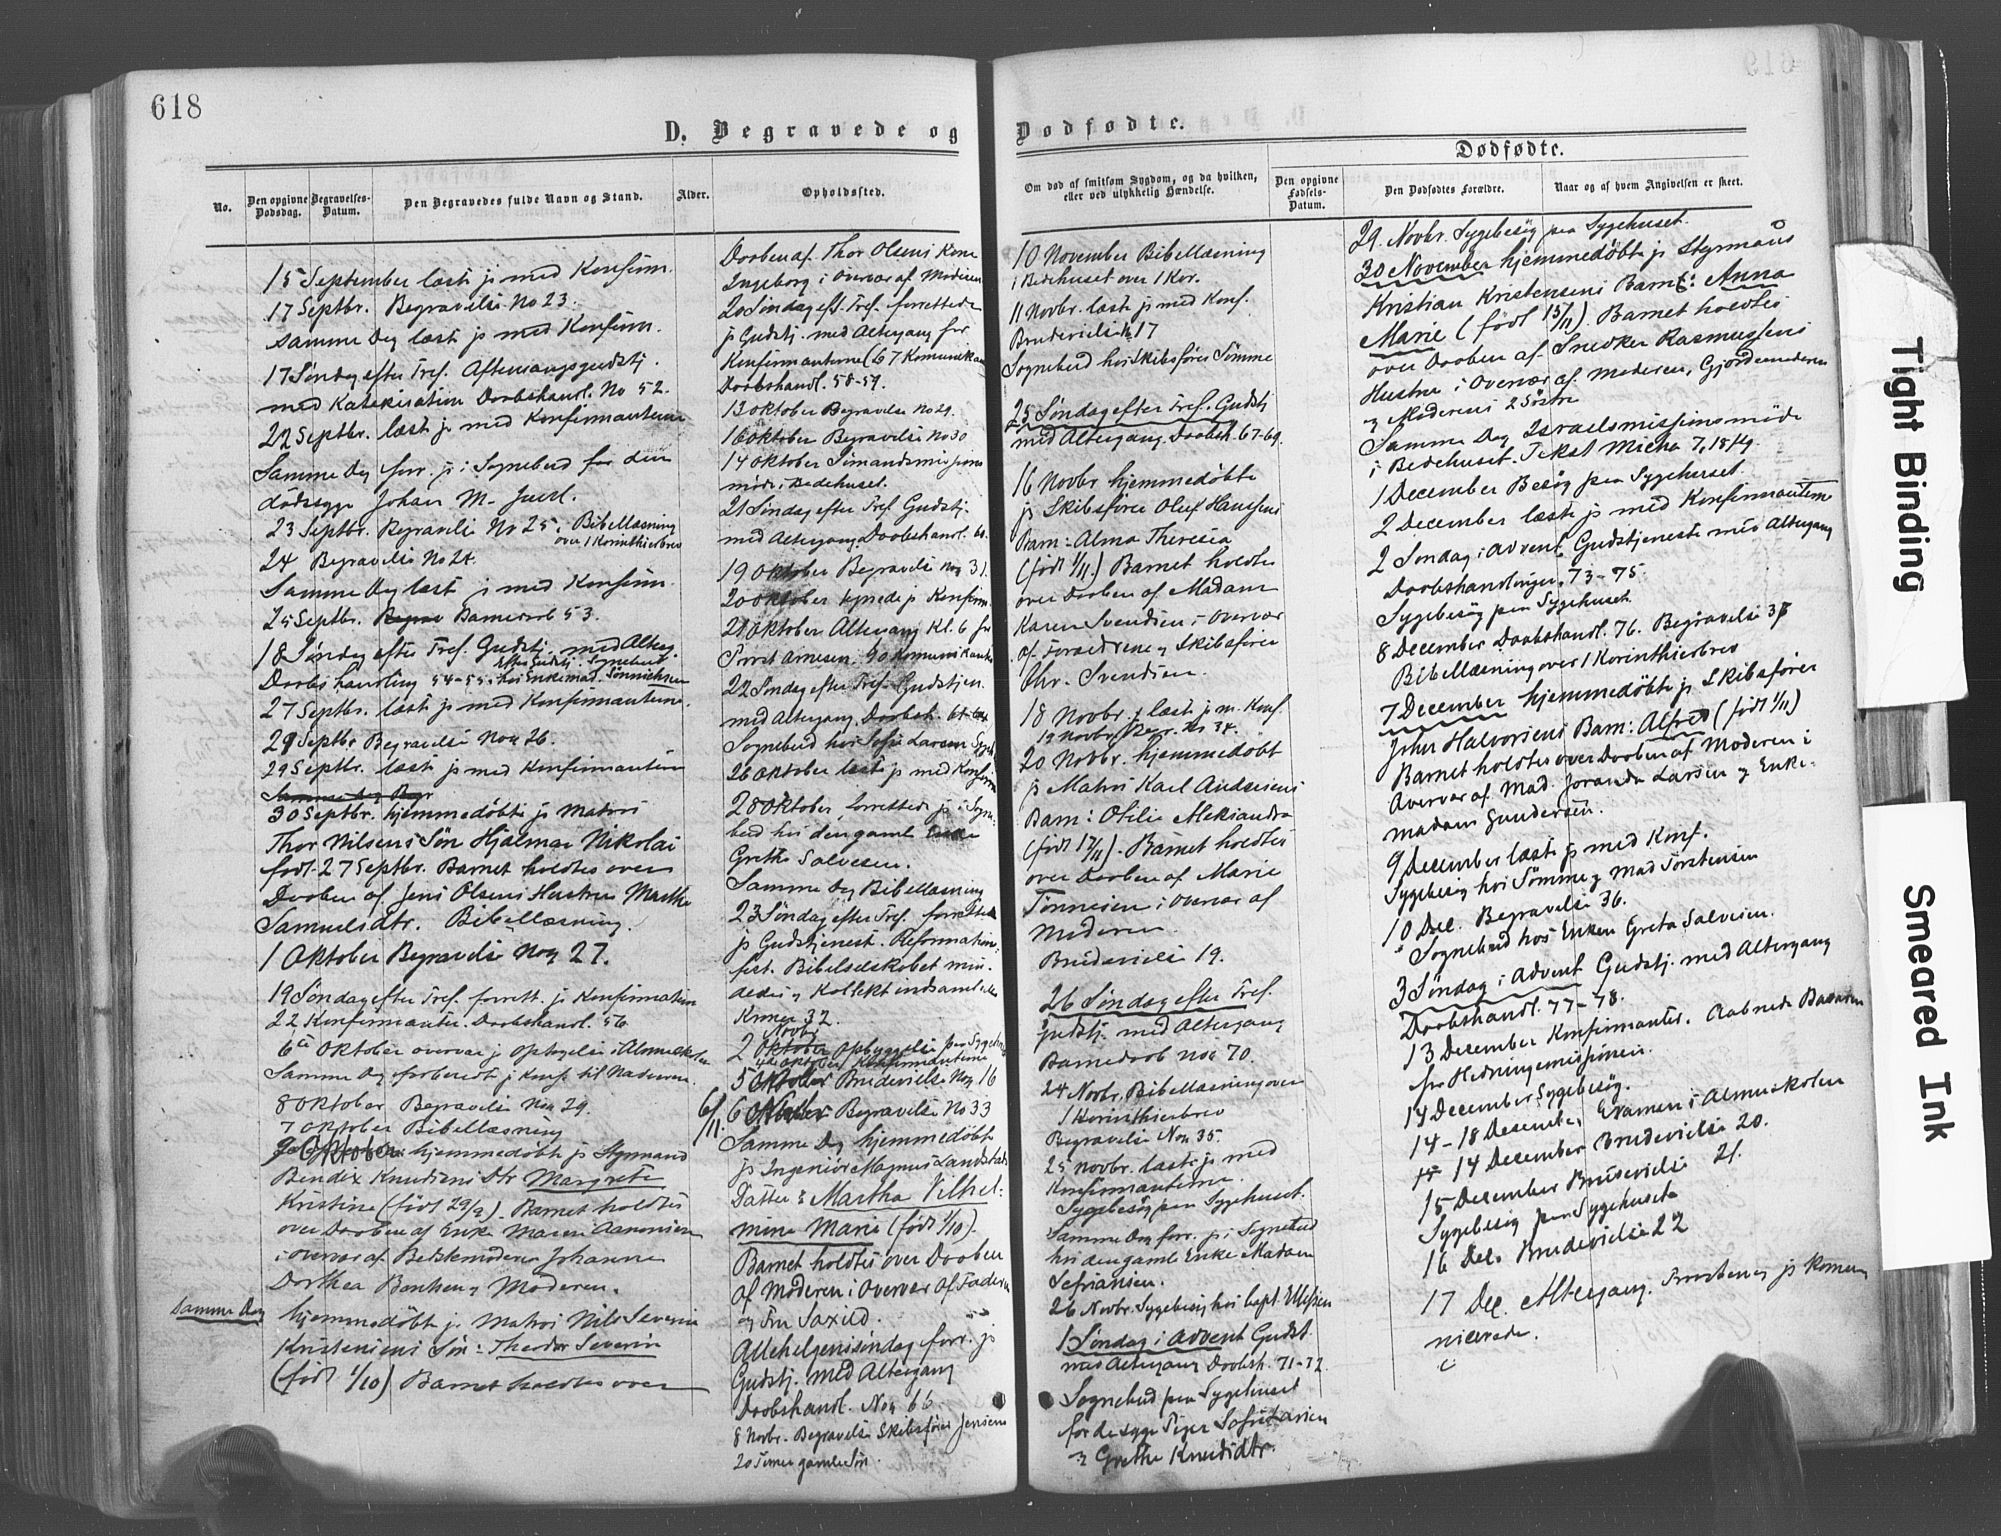 618
D. Begravede og
No.
Den opgivne Dødsdag.
Begravelses-Datum.
Den Begravedes fulde Navn og Stand.
Alder.
Opholdssted.
15 September læst js med Konfirm.
17 Septbr. Begravelse No 23.
Samme Dag læst js med Konfirm.
17 Søndag efter Tref. Aftensangsgudstj.
med Katekisation Daabshandl. No 52.
22 Septbr. læst js med Konfirmanterne
Samme Dag forr. js i Sognebud for den
dødssyge Johan M. Juell.
23 Septbr. Begravelse No 25. Bibellæsning
over 1 Korinthierbrev
24 Begravelse No 24.
Samme Dag læst js med Konfirm.
25 Septbr. Barnedaab 53.
18 Søndag efter Tref. Gudstj. med Alterg.
Efter Gudstj. Sognebud
Daabshandling 54-55. hos Enkemad. Sønnichsen
27 Septbr. læst js med Konfirmanterne.
29 Septbr Begravelse Nor 26.
29 Septbr. læst js med Konfirmanterne
Samme Dag Begr
30 Septbr. hjemmedøbte js Matros
Thor Nilsens Søn Hjalmar Nikolai
født 27 Septbr. Barnet holdtes over
Daaben af Jens Olsens Hustru Marthe
Samuelsdtr. Bibellæsning.
1 Oktober Begravelse Nor 27.
19 Søndag efter Tref. forrett. js Konfirmation
22 Konfirmanter. Daabshandl. 56
6te Oktober overvar js Optagelse i Almueskolen
Samme Dag forberedt js Konf. til Nadveren.
8 Oktober Begravelse Nor 29.
7 Oktober Bibellæsning
9 Oktober hjemmedøbte js Styrmand
Bendix Knudsens Dtr Margrete
Kristine (født 29/9). Barnet holdtes
over Daaben af Enke Maren Aanonsen
i Overvær af Bedstemoderen Johanne
Dorthea Bentsen og Moderen.
Samme Dag hjemmedøbte js Matros Nils Severin
Kristensens Søn: Theodor Severin
(født 1/10) Barnet holdtes over
Daaben af Thor Olsens Kone
Ingeborg i Overvær af Moderen
20 Søndag eft. Tref. forrettede
js Gudstj. med Altergang for
Konfirmanterne (67 Komunikan
Daabshandl. 58-59.
13 Oktober Begravelse No 29.
16 Oktober Begravelse No 30
14 Oktober Sømandsmissions
møde i Bedehuset.
21 Søndag efter Tref. Gudstj.
med Altergang. Daabshandl. 60.
19 Oktober Begravelse Nor 31.
20 Oktober js Konfirm.
21 Oktober Altergang Kl. 6 for
Provst Arnesen. 90 Komunikanter
22 Søndag efter Tref. Gudstjen.
med Altergang. Daabsh.
Sognebud hos Sofie Larsen
26 Oktober læst js med Konfirm
28 Oktober forrettede js i Sogne-
bud hos den gamle Enke
Grethe Salvesen.
Samme Dag Bibellæsning
23 Søndag efter Tref. forrettede
js Gudstjenest. Reformations-
fest. Bibelselskabet min-
dedes og Kollekt indsamledes
Kroner 32.
Novbr
2 Oktober Opbyggelse paa Sygehuset
5 Oktober Brudevielse Nor 16
6/11. 6 Oktober Begravelse No 33
Samme Dag hjemmedøbte
js Ingeniør Magnus Landstads
Datter: Martha Vilhel-
mine Marie (født 1/10).
Barnet holdtes over Daaben
af Moderen i Overvær af Faderen
og Fru Saxild.
Allehelgenssøndag forr. js
Gudstj. med Altergang
Daabshandl. Nor 66
8 Novbr. Begravelse Skibsfører Jensens
20 Timer gamle Søn.
Dødfødte.
Om død af smitsom Sygdom, og da hvilken, eller ved ulykkelig Hændelse.
Dødfødte.
Den opgivne Fødsels-Datum.
Den Dødfødtes Forældre.
Naar og af hvem Angivelsen er skeet.
10 November Bibellæsning
i Bedehuset over 1 Kor.
11 Novbr. læst js med Konf.
Brudevielse No 17
Sognebud hos Skibsfører Sømme
25 Søndag efter Tref. Gudstj
med Altergang. Daabsh. 67-69.
16 Novbr hjemmedøbte
js Skibsfører Oluf Hansens
Barn: Alma Theresia
(født 1/11.) Barnet holdtes
over Daaben af Madam
Karen Svendsen i Overvær
af Forældrene og Skibsfører
Chr. Svendsen.
18 Novbr. læst js m. Konf.
19 Novbr. Begr. No 34.
20 Novbr. hjemmedøbt
js Matros Karl Andersens
Barn: Otilie Aleksandra
(født 17/11). Barnet holdtes
over Daaben af Marie
Tønnesen i Overvær af
Moderen.
Brudevielse 19.
26 Søndag efter Tref.
Gudstj. med Altergang
Barnedaab Nor 70.
24 Novbr. Bibellæsning over
1 Korinthierbrev
Begravelse Nor 35.
25 Novbr. læst js med
Konfirmanterne.
Sygebesøg paa Sygehuset.
Samme Dag forr. js i Sognebud
hos den gamle Enke Madam
Sefriansen.
26 Novbr. Sygebesøg hos Capt. Ellefsen
1 Søndag i Advent Gudst.
med Altergang Daabsh. 71-72.
Sognebud paa Sygehuset
for de syge Piger Sofie Larsen
og Grethe Knudsdtr.
29. Novbr. Sygebesøg paa Sygehuset.
30 November hjemmedøbte js Styrmand
Kristian Kristensens Barn: Anna
Marie (født 15/11). Barnet holdtes
over Daaben af Snedker Rasmussens
Hustru i Overvær af Moderen, Gjordemoderen
og Moderens 2 Søstre
Samme Dag Israelsmissionsmøde
i Bedehuset. Tekst Micha 7, 18 flg.
1 December Besøg paa Sygehuset.
2 December læste js med Konfirmanterne
2 Søndag i Advent Gudstjeneste med Altergang
Daabshandlinger, 73-75.
Sygebesøg paa Sygehuset.
8 December Daabshandl. 76. Begravelse 37
Bibellæsning over 1 Korinthierbrev
7 December hjemmedøbte js Skibsfører
John Halvorsens Barn: Alfred (født 1/11)
Barnet holdtes over Daaben af Moderen i
Overvær af Mad. Joranda Larsen og Enke-
madam Gundersen.
9 December læst js med Konf.
Sygebesøg hos Sømme og Mad Torstensen
10 Dec. Begravelse 36.
" Sognebud hos Enken Greta Salvesen.
3 Søndag i Advent Gudstj. med Altergang
Daabshandl. 77-78.
13 December Konfirmanter. Aabnede Basaren
for Hedningemissionen.
14 December Sygebesøg.
14-18 December, Examen i Almueskolen
14 December Brudevielse 20.
15 December Brudevielse 21.
Sygebesøg paa Sygehuset
16 Dec. Brudevielse 22
17 Dec. Altergang.